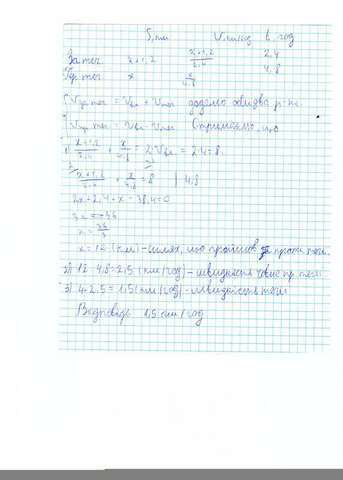 S, км V км/год t год
За теч. x+1,2 x+1,2/2,4 2,4
Пр. теч. x x/4,8 4,8
додамо обидва р-ня.
Отримаємо, що
1) x+1,2/2,4 + x/4,8 = 2·Vвл = 2·4=8.
x+1,2/2,4 + x/4,8 = 8 | 4,8
2x+2,4+x-38,4=0
3x=36
x=36/3
x=12 (км) - шлях, що пройшов проти течії.
2) 12:4,8=2,5 (км/год) - швидкість пр. течії
3) 4-2,5=1,5 (км/год) - швидкість течії
Відповідь 1,5 км/год